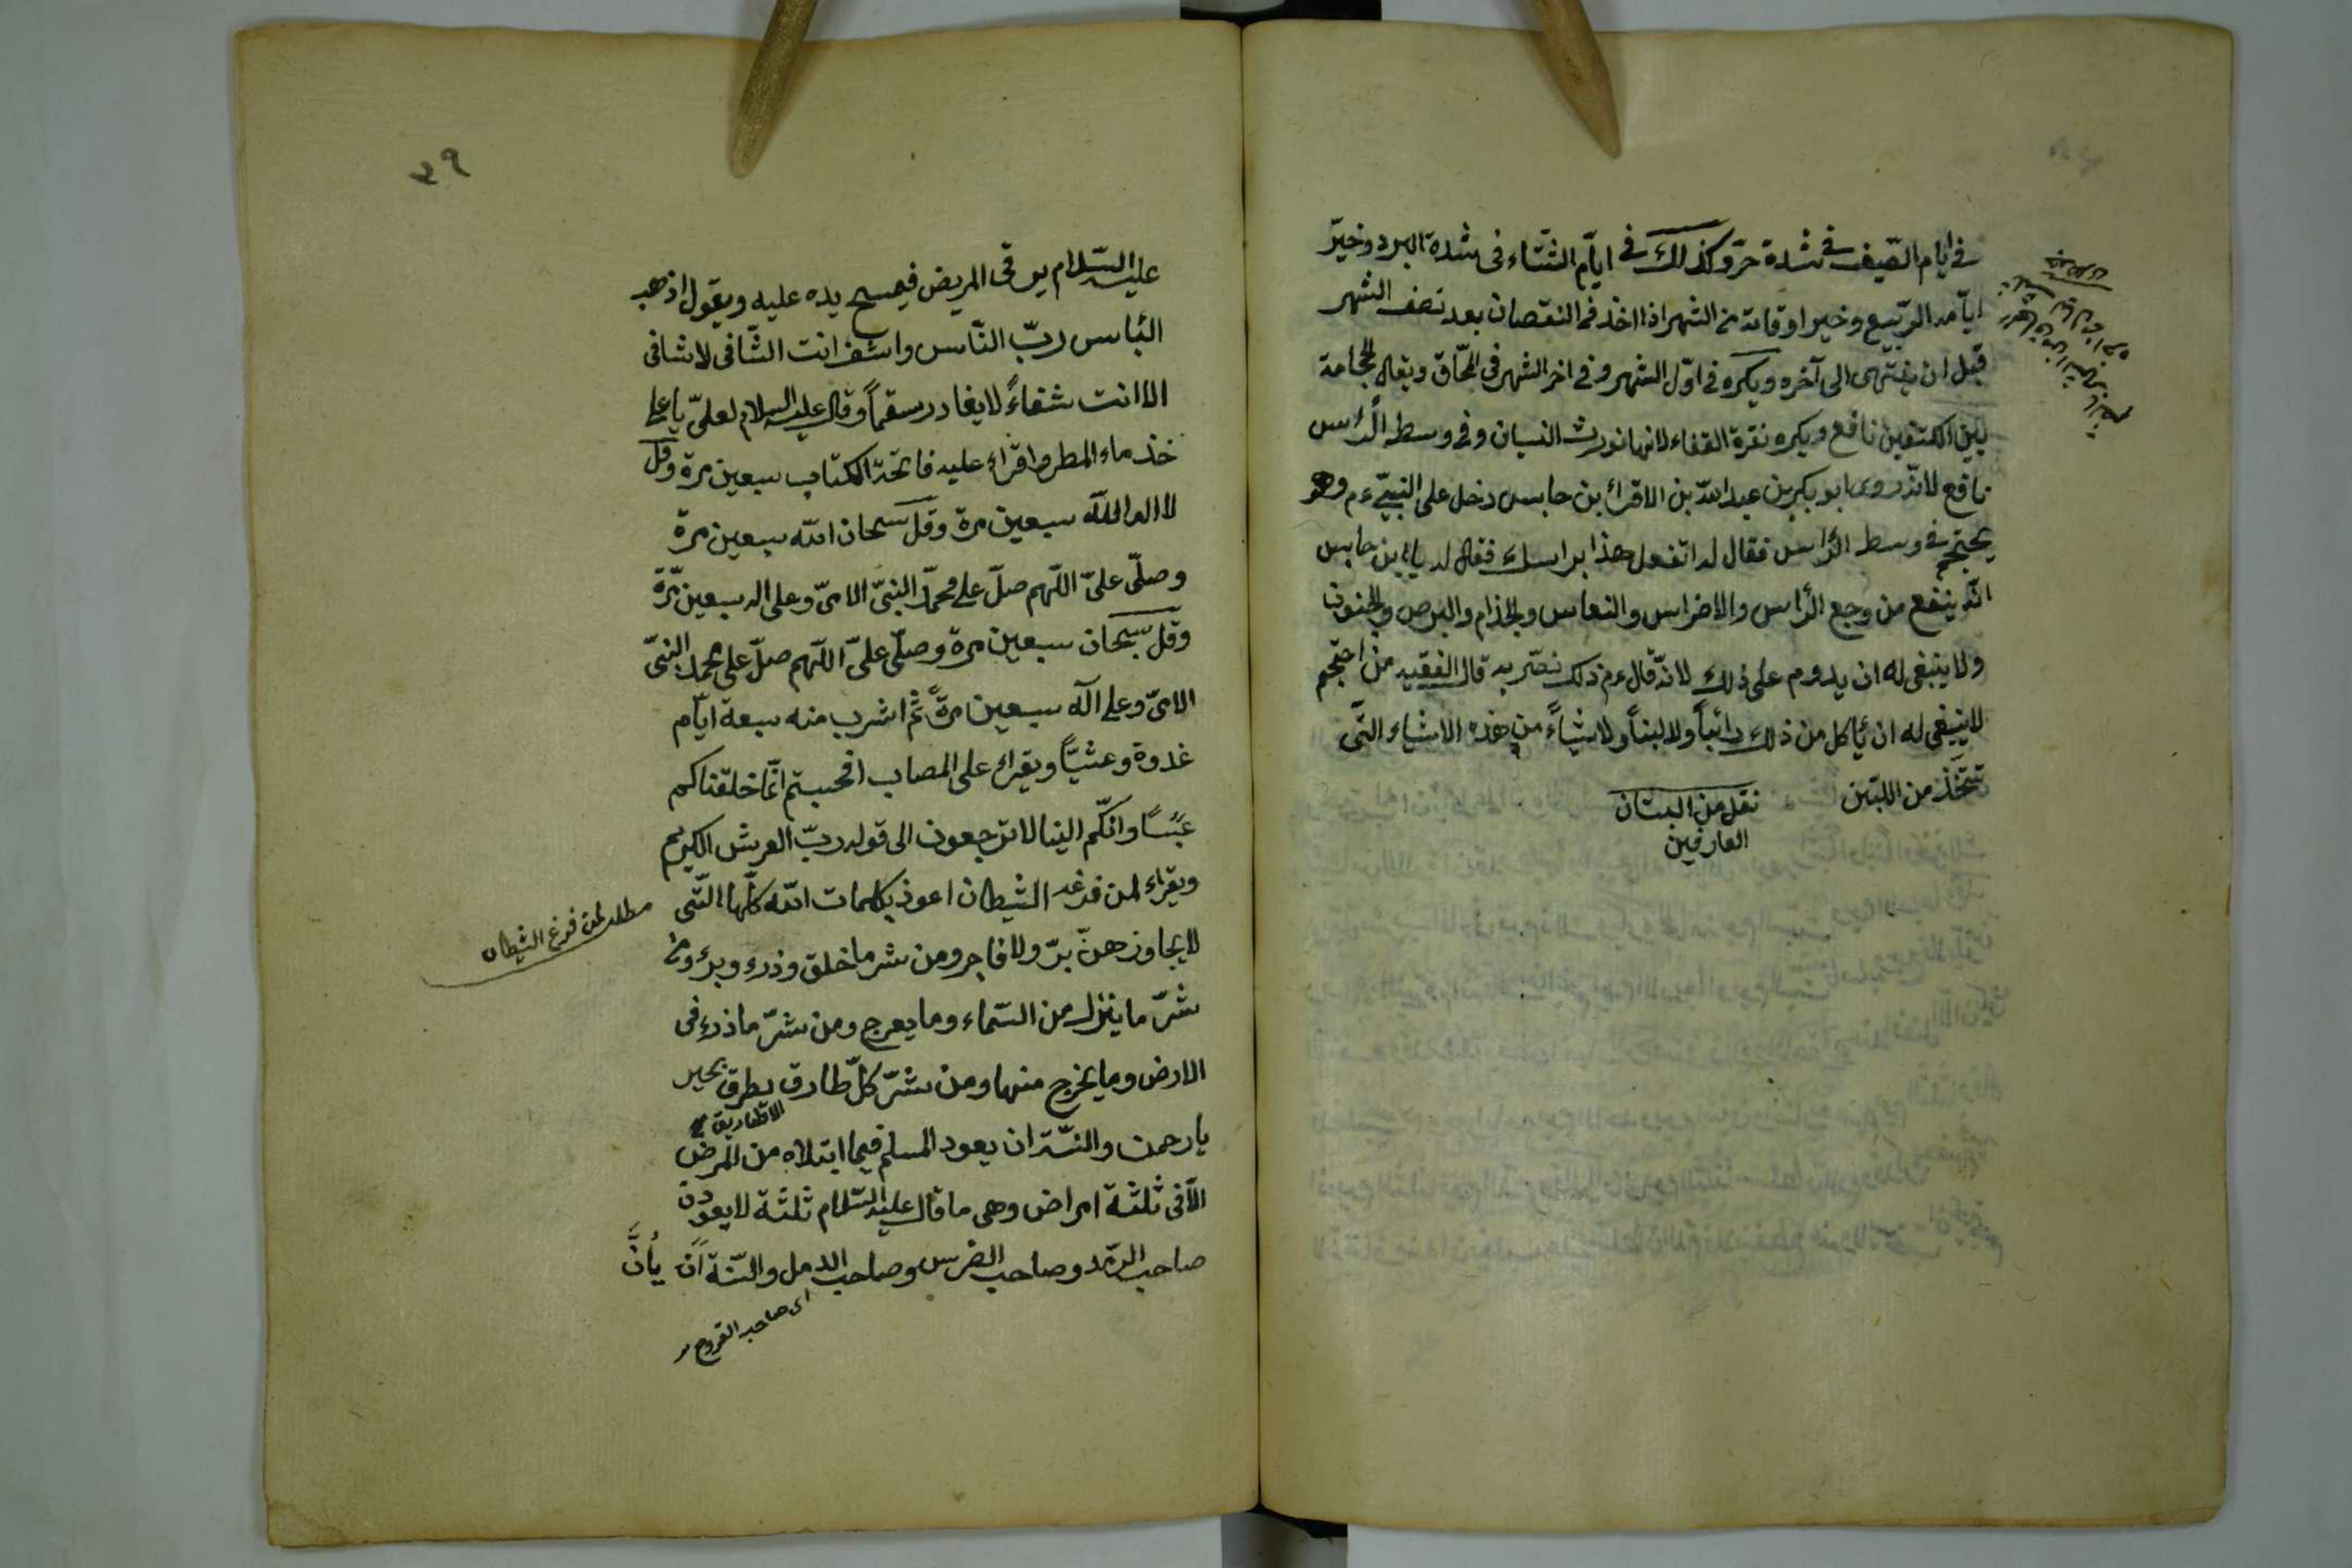 فى ايام الصّيف فى شدة حرّ وكذلك فى ايّام الشّتاء فى شدة البرد وخيرّ
ايّامه الرّبيع وخير اوقاته من الشهر اذا اخذ فى النقصان بعد نصف الشهر
قبل ان ينتهى الى آخره ويكره فى اوّل الشهر وفى اخر الشهر فى المحّاق ويقال الحجامة
بين الكتفين نافع ويكره نقرة القفاء لانها تورث النسيان وفى وسط الرّاس
نافع لانّه روى ابو بكر بن عبد اللّه بن الاقراء بن حابس دخل على النبىّ ءم وهو
يحتجم فى وسط الرّاس فقال له اتفعل هذا براسك فقال له يا ابن حابس
انّه ينفع من وجع الرّاس والاضراس والنعاس والجذام والبرص والجنون
ولا ينبغى له ان يدوم على ذلك لانّه قال ءم ذلك تضرّ به قال الفقيه من احتجم
لا ينبغى له ان يأكل من ذلك رائباً ولا لبناً ولا شياءً من هذه الاشياء التّى
تتّخذ من اللبّن نقل من البستان
العارفين
٣٩
عليه السّلام يرقى المريض فيمسح يده عليه ويقول اذهب
البأس ربّ النّاس واشف انت الشّافى لا شافى
الا انت شفاءً لا يغادر سقماً وقال عليه السلام لعلىّ يا على
خذ ماء المطر واقراء عليه فاتحة الكتاب سبعين مرة وقل
لا اله الا اللّه سبعين مرة وقل سبحان اللّه سبعين مرة
وصلّى علىّ اللّهم صلّ على محمّد النبىّ الامىّ وعلى اله سبعين مرّة
وقل سبحان سبعين مرة وصلّى علىّ اللّهم صلّ على محمد النبىّ
الامىّ وعلى آله سبعين مرةً ثمّ اشرب منه سبعة ايّام
غدوة وعشيّاً ويقراء على المصاب افحسبتم انّما خلقناكم
عبثاً وانكّم الينا لا ترجعون الى قوله ربّ العرش الكريم
ويقراء لمن فزغه الشيطان اعوذ بكلمات اللّه كلّها التّى
مطلب لمن فزغ الشيطان
لا يجاوزهنّ برّ ولا فاجر ومن شر ما خلق وذرء وبرء ومن
شرّ ما ينزل من السّماء وما يعرج ومن شرّ ما ذرء فى
الارض وما يخرج منها ومن شرّ كلّ طارق يطرق بخير
الا طارق
يا رحمن والسّنة ان يعود المسلم فيما ابتلاه من المرض
الّا فى ثلثة امراض وهى ما قال عليه السّلام ثلثة لا يعودن
صاحب الرّمد وصاحب الضرس وصاحب الدمل والسّنة اَن يأنَّ
اى صاحب القروح